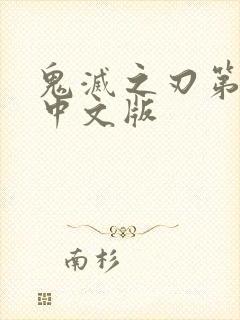 鬼滅之刃第
中文版
南杉